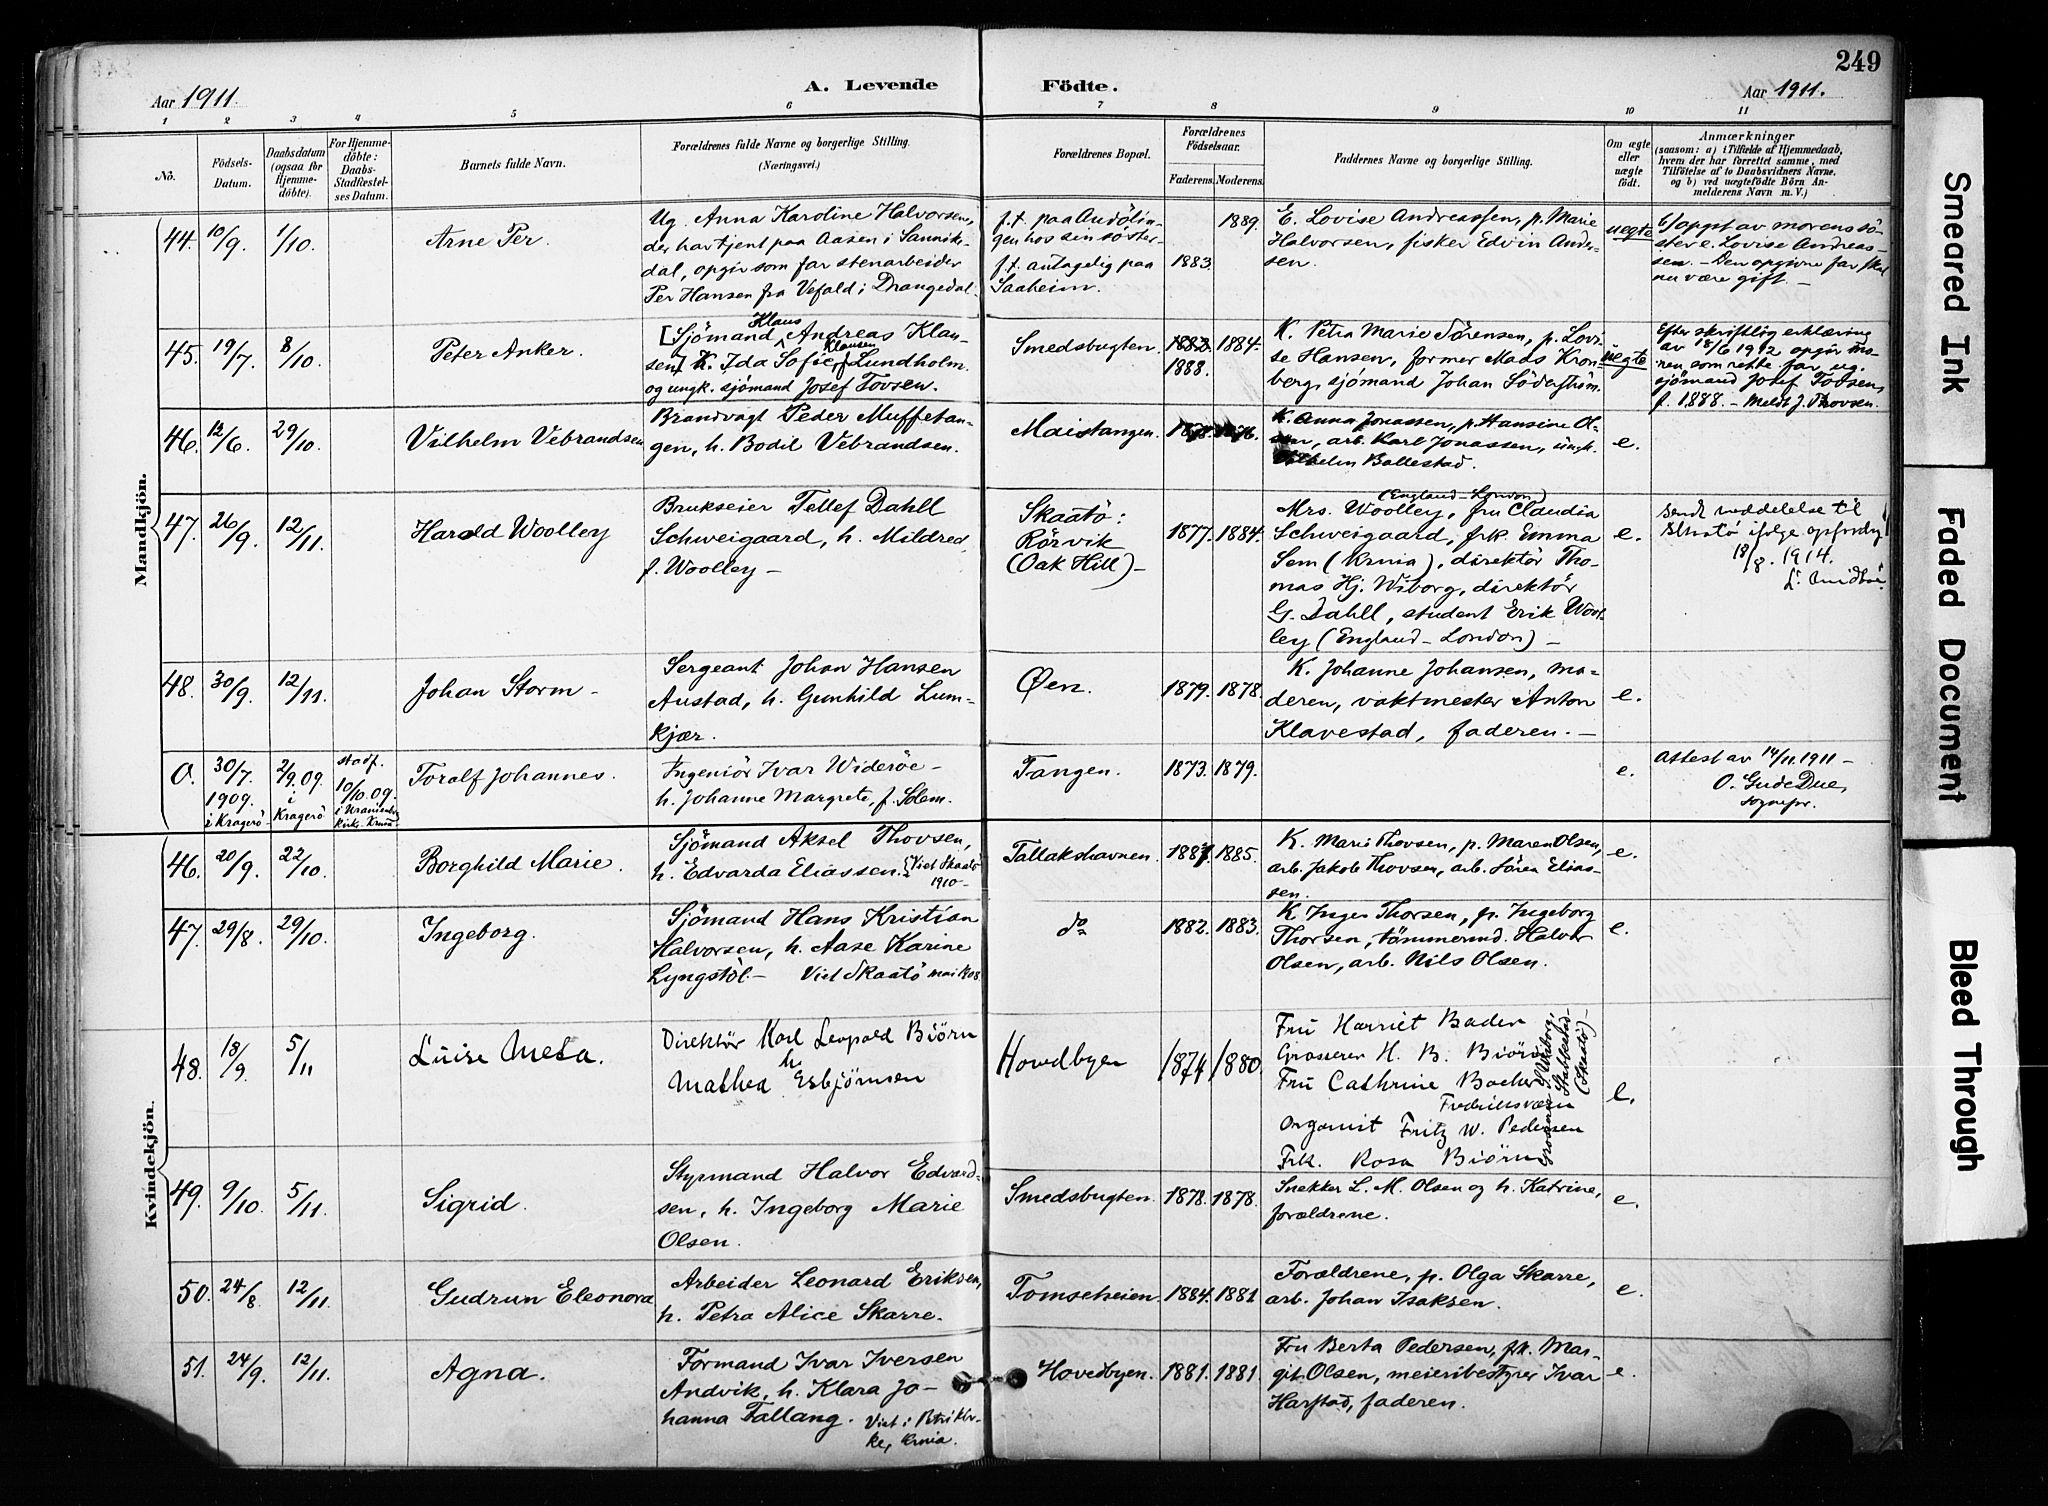 249
Aar 1911.
A. Levende Födte.
Aar 1911.
1 2 3 4 5 6 7 8 9 10 11
No.
Födsels-Datum.
Daabsdatum (ogsaa for Hjemme-döbte).
For Hjemme-döbte: Daabs-Stadfæstel-ses Datum.
Barnets fulde Navn.
Forældrenes fulde Navne og borgerlige Stilling. (Næringsvei.)
Forældrenes Bopæl.
Forældrenes Födselsaar.
Faderens. Moderens.
Faddernes Navne og borgerlige Stilling.
Om ægte eller uægte födt.
Anmærkninger
(saasom: a) i Tilfælde af Hjemmedaab,
hvem der har forrettet samme, med
Tilföielse af to Daabsvidners Navne,
og b) ved uægtefödte Börn An-
melderens Navn m. V.)
Mandkjön.
44. 10/9. 1/10. Arne Per.
Ug. Anna Karoline Halvorsen,
der har tjent paa Aasen i Sannike-
dal, opgir som far stenarbeider
Per Hansen fra Vefald i Drangedal.
f.t. paa Andölin-
gen hos sin söster.
f.t. antagelig paa
Saaheim.
1883. 1889.
E. Lovise Andreassen, p. Marie
Halvorsen, fisker Edvin Ander-
sen.
uegte
Opgit av morens sö-
ster e. Lovise Andreas-
sen. – Den opgivne far skal
nu være gift. –
45. 19/7. 8/10. Peter Anker.
[Sjömand Klaus Andreas Klau-
sen] K. Ida Sofie Klausen f. Lundholm
og ungk. sjömand Josef Tovsen.
Smedsbugten.
1882. 1884.
1888.
K. Petra Marie Sörensen, p. Lovi-
se Hansen, former Mads Kron-
berg, sjömand Johan Söderström.
uegte
Efter skriftlig erklæring
av 18/6 1912 opgir mo-
ren som rette far ug.
sjömand Josef Tovsen,
f. 1888. – Meldt J. Thovsen.
46. 12/6. 29/10. Vilhelm Vebrandsen
Brandvagt Peder Muffetan-
gen, h. Bodil Vebrandsen.
Maistangen.
K. Anna Jonassen, p. Hansine Ol-
sen, arb. Karl Jonassen, ungk.
Vilhelm Ballestad.
e.
47. 26/9. 12/11. Harald Woolley
Brukseier Tellef Dahll
Schweigaard, h. Mildred
f. Woolley –
Skaatö:
Rörvik
(Oak Hill) –
1877. 1884.
(England – London)
Mrs. Woolley, fru Claudia
Schweigaard, frk. Emma
Sem (Krnia), direktör Tho-
mas Hj. Wiborg, direktör
G. Dahll, student Erik Wool-
ley (England – London) –
e.
Sendt meddelelse til
Skaatö ifölge opfordring
18/8. 1914.
48. 30/9. 12/11. Johan Storm –
Sergeant Johan Hansen
Austad, h. Gunhild Lum-
kjær.
Øen.
1879. 1878.
K. Johanne Johansen, mo-
deren, vaktmester Anton
Klavestad, faderen. –
e.
O. 30/7. 1909. i Kragerö
2/9.09. i Kragerö
stadf. 10/10.09. i Uranienbg. kirk. Krnia.
Toralf Johannes.
Ingeniör Ivar Wideröe –
h. Johanne Margrete, f. Solem.
Tangen.
1873. 1879.
e.
Attest av 14/11.1911 –
O. Gude Due,
sognepr.
Kvindekjön.
46. 20/9. 22/10. Borghild Marie.
Sjömand Aksel Thovsen,
h. Edvarda Eliassen. {Viet Skaatö
1910 –
Tallakshavnen.
1887. 1885.
K. Marie Thovsen, p. Maren Olsen,
arb. Jakob Thovsen, arb. Sören Elias-
sen.
e.
47. 29/8. 29/10. Ingeborg.
Sjömand Hans Kristian
Halvorsen, h. Aase Karine
Lyngstöl. – Viet Skaatö mai 1908.
do
1882. 1883.
K. Inger Thorsen, p. Ingeborg
Thorsen, tömmermd. Halvor
Olsen, arb. Nils Olsen.
e.
48. 18/9. 5/11 Luise Meta.
Direktör Karl Leopold Biörn
h
Mathea Esbjörnsen
Hovedbyen
1874 1880
Fru Harriet Bader
Grosserer H. B. Biörn
Fru Cathrine Bacher
Fredriksværn
Organist Fritz W. Pedersen
Frk. Rosa Biörn
Grosserer S. Wiborg,
Stabbestad
(Skaatö) –
e.
49. 9/10. 5/11. Sigrid.
Styrmand Halvor Edvard-
sen, h. Ingeborg Marie
Olsen.
Smedsbugten.
1878. 1878.
Snekker L. M. Olsen og h. Katrine,
forældrene.
e.
50. 24/8. 12/11. Gudrun Eleonora
Arbeider Leonard Eriksen,
h. Petra Alice Skarre.
Tomseheien.
1884. 1881
Forældrene, p. Olga Skarre,
arb. Johan Isaksen.
e.
51. 24/9. 12/11. Agna.
Formand Ivar Iversen
Andvik, h. Klara Jo-
hanna Fallang. Viet i Petrikir-
ke, Krnia.
Hovedbyen.
1881. 1881
Fru Berta Pedersen, frk. Mar-
git Olsen, meieribestyrer Ivar
Harstad, faderen.
e.
Smeared Ink
Faded Document
Bleed Through